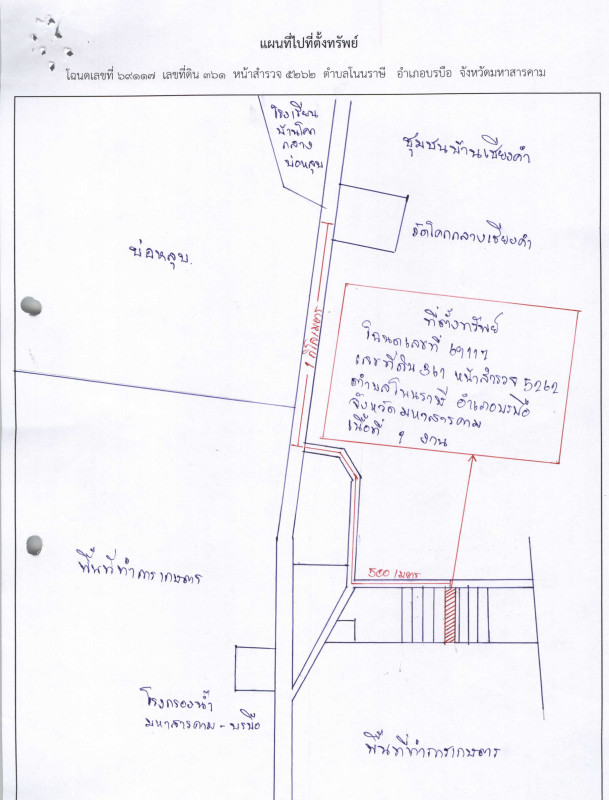 แผนที่ไปที่ตั้งทรัพย์
โฉนดเลขที่ ๖๙๑๑๗ เลขที่ดิน ๓๖๑ หน้าสำรวจ ๕๒๖๒ ตำบลโนนราษี อำเภอบรบือ จังหวัดมหาสารคาม
โรงเรียน
บ้านโคก
กลาง
บ่อหลุบ
ชุมชนบ้านเชียงคำ
วัดโคกกลางเชียงคำ
บ่อหลุบ.
1 กิโลเมตร
ที่ตั้งทรัพย์
โฉนดเลขที่ 69117
เลขที่ดิน 361 หน้าสำรวจ 5262
ตำบลโนนราษี อำเภอบรบือ
จังหวัดมหาสารคาม
เนื้อที่ 1 งาน
500 เมตร
พื้นที่ทำการเกษตร
โรงกรองน้ำ
มหาสารคาม - บรบือ
พื้นที่ทำการเกษตร